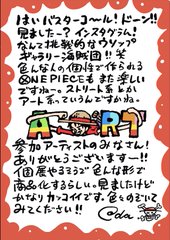 はいバスターコ〜ル!ドーン!!
見ましたー?インスタグラム!
なんて挑戦的なウソップ
ギャラリー海賊団!!笑
色んな人の個性で作られる
ONE PIECEもまた楽しい
ですねー。ストリート系とか
アート系。っていうんですかね。
ART
参加アーティストのみなさん!
ありがとうございますー!!
個展やるそうで色んな形で
商品化するらしい。見ましたけど
かなりカッコイイです。色をぬいて
みてください!!
Oda